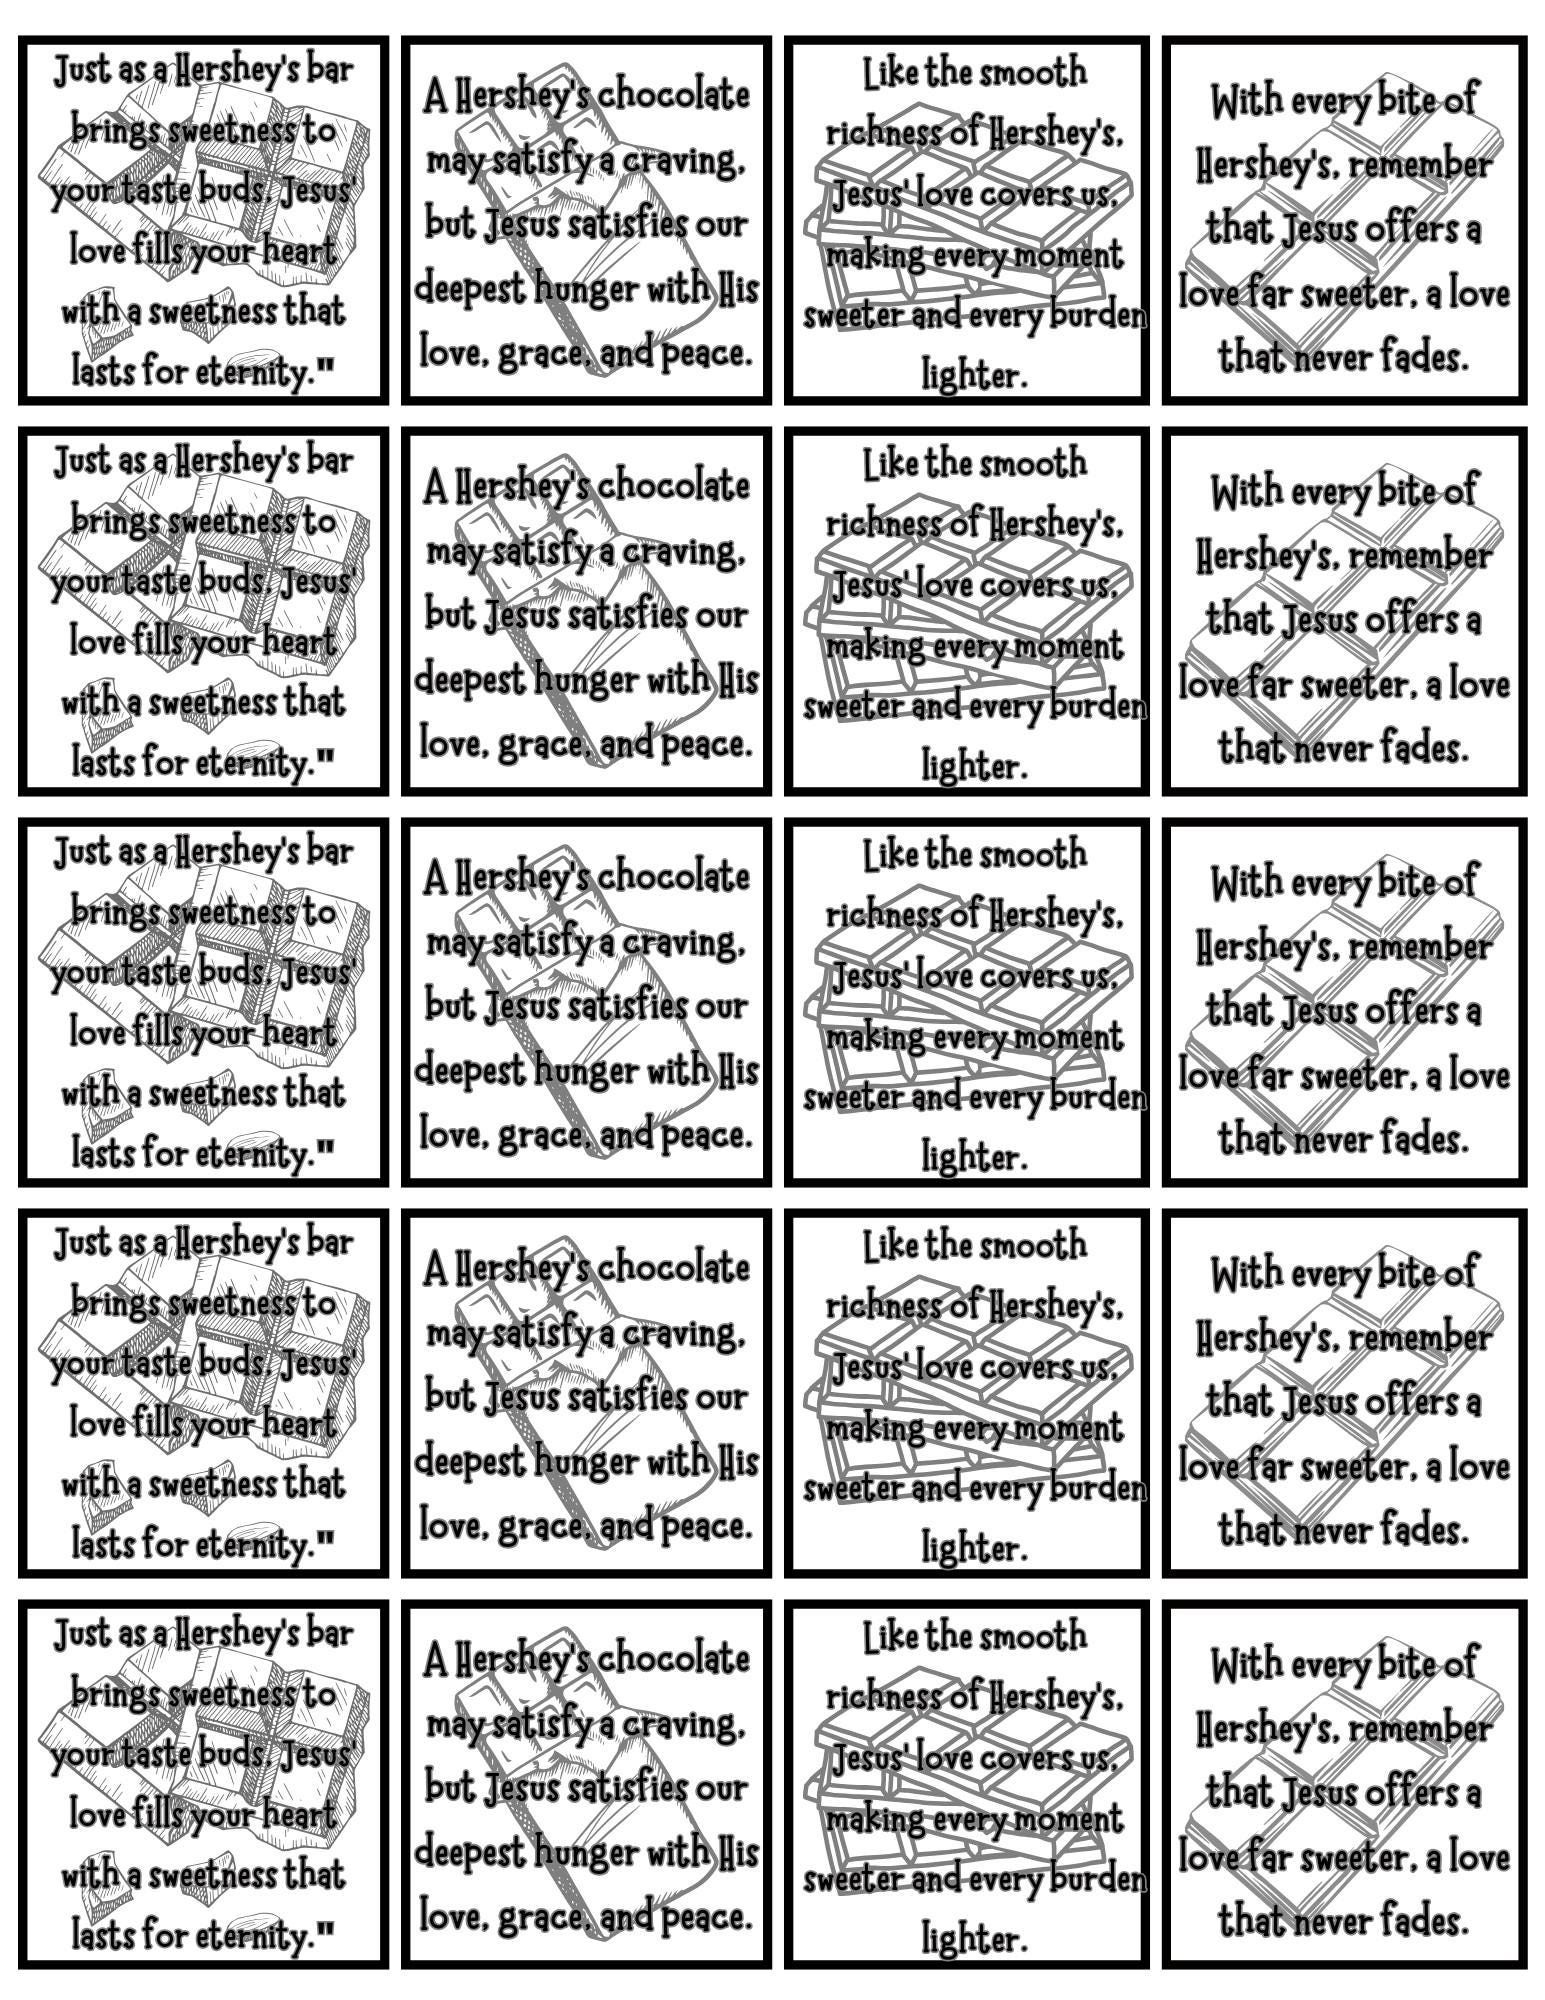 Just as a Hershey's bar
brings sweetness to
your taste buds, Jesus'
love fills your heart
with a sweetness that
lasts for eternity."
A Hershey's chocolate
may satisfy a craving,
but Jesus satisfies our
deepest hunger with His
love, grace, and peace.
Like the smooth
richness of Hershey's,
Jesus' love covers us,
making every moment
sweeter and every burden
lighter.
With every bite of
Hershey's, remember
that Jesus offers a
love far sweeter, a love
that never fades.
Just as a Hershey's bar
brings sweetness to
your taste buds, Jesus'
love fills your heart
with a sweetness that
lasts for eternity."
A Hershey's chocolate
may satisfy a craving,
but Jesus satisfies our
deepest hunger with His
love, grace, and peace.
Like the smooth
richness of Hershey's,
Jesus' love covers us,
making every moment
sweeter and every burden
lighter.
With every bite of
Hershey's, remember
that Jesus offers a
love far sweeter, a love
that never fades.
Just as a Hershey's bar
brings sweetness to
your taste buds, Jesus'
love fills your heart
with a sweetness that
lasts for eternity."
A Hershey's chocolate
may satisfy a craving,
but Jesus satisfies our
deepest hunger with His
love, grace, and peace.
Like the smooth
richness of Hershey's,
Jesus' love covers us,
making every moment
sweeter and every burden
lighter.
With every bite of
Hershey's, remember
that Jesus offers a
love far sweeter, a love
that never fades.
Just as a Hershey's bar
brings sweetness to
your taste buds, Jesus'
love fills your heart
with a sweetness that
lasts for eternity."
A Hershey's chocolate
may satisfy a craving,
but Jesus satisfies our
deepest hunger with His
love, grace, and peace.
Like the smooth
richness of Hershey's,
Jesus' love covers us,
making every moment
sweeter and every burden
lighter.
With every bite of
Hershey's, remember
that Jesus offers a
love far sweeter, a love
that never fades.
Just as a Hershey's bar
brings sweetness to
your taste buds, Jesus'
love fills your heart
with a sweetness that
lasts for eternity."
A Hershey's chocolate
may satisfy a craving,
but Jesus satisfies our
deepest hunger with His
love, grace, and peace.
Like the smooth
richness of Hershey's,
Jesus' love covers us,
making every moment
sweeter and every burden
lighter.
With every bite of
Hershey's, remember
that Jesus offers a
love far sweeter, a love
that never fades.